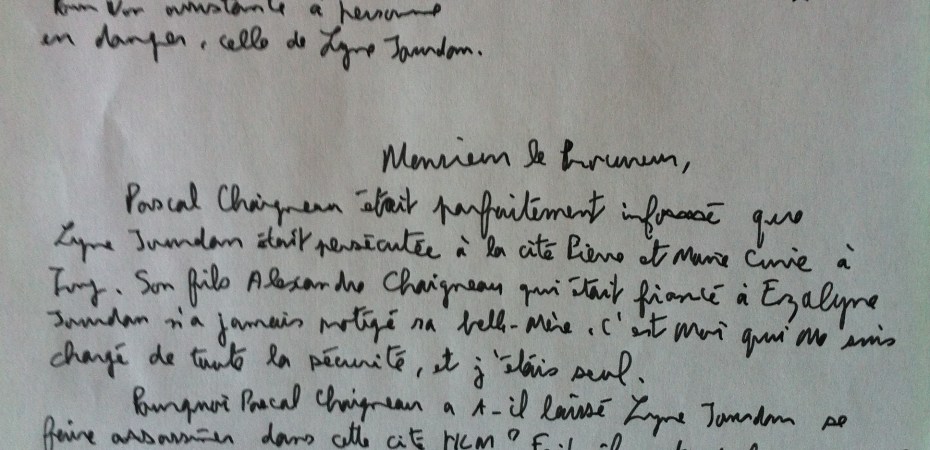 Pour Non assistance à personne
en danger, celle de Lyne Jourdan.
Monsieur le Procureur,
Pascal Chaigneau était parfaitement informé que
Lyne Jourdan était persécutée à la cité Pierre et Marie Curie à
Ivry. Son fils Alexandre Chaigneau qui était fiancé à Ezalyne
Jourdan n'a jamais protégé sa belle-mère. C'est moi qui me suis
chargé de toute la sécurité, et j'étais seul.
Pourquoi Pascal Chaigneau a t-il laissé Lyne Jourdan se
faire assassiner dans cette cité HLM ?